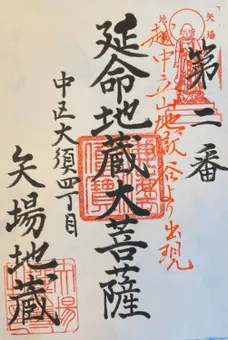 矢場
第二番
越中立山地獄谷より出現
延命地蔵大菩薩
中区大須四丁目
矢場地蔵